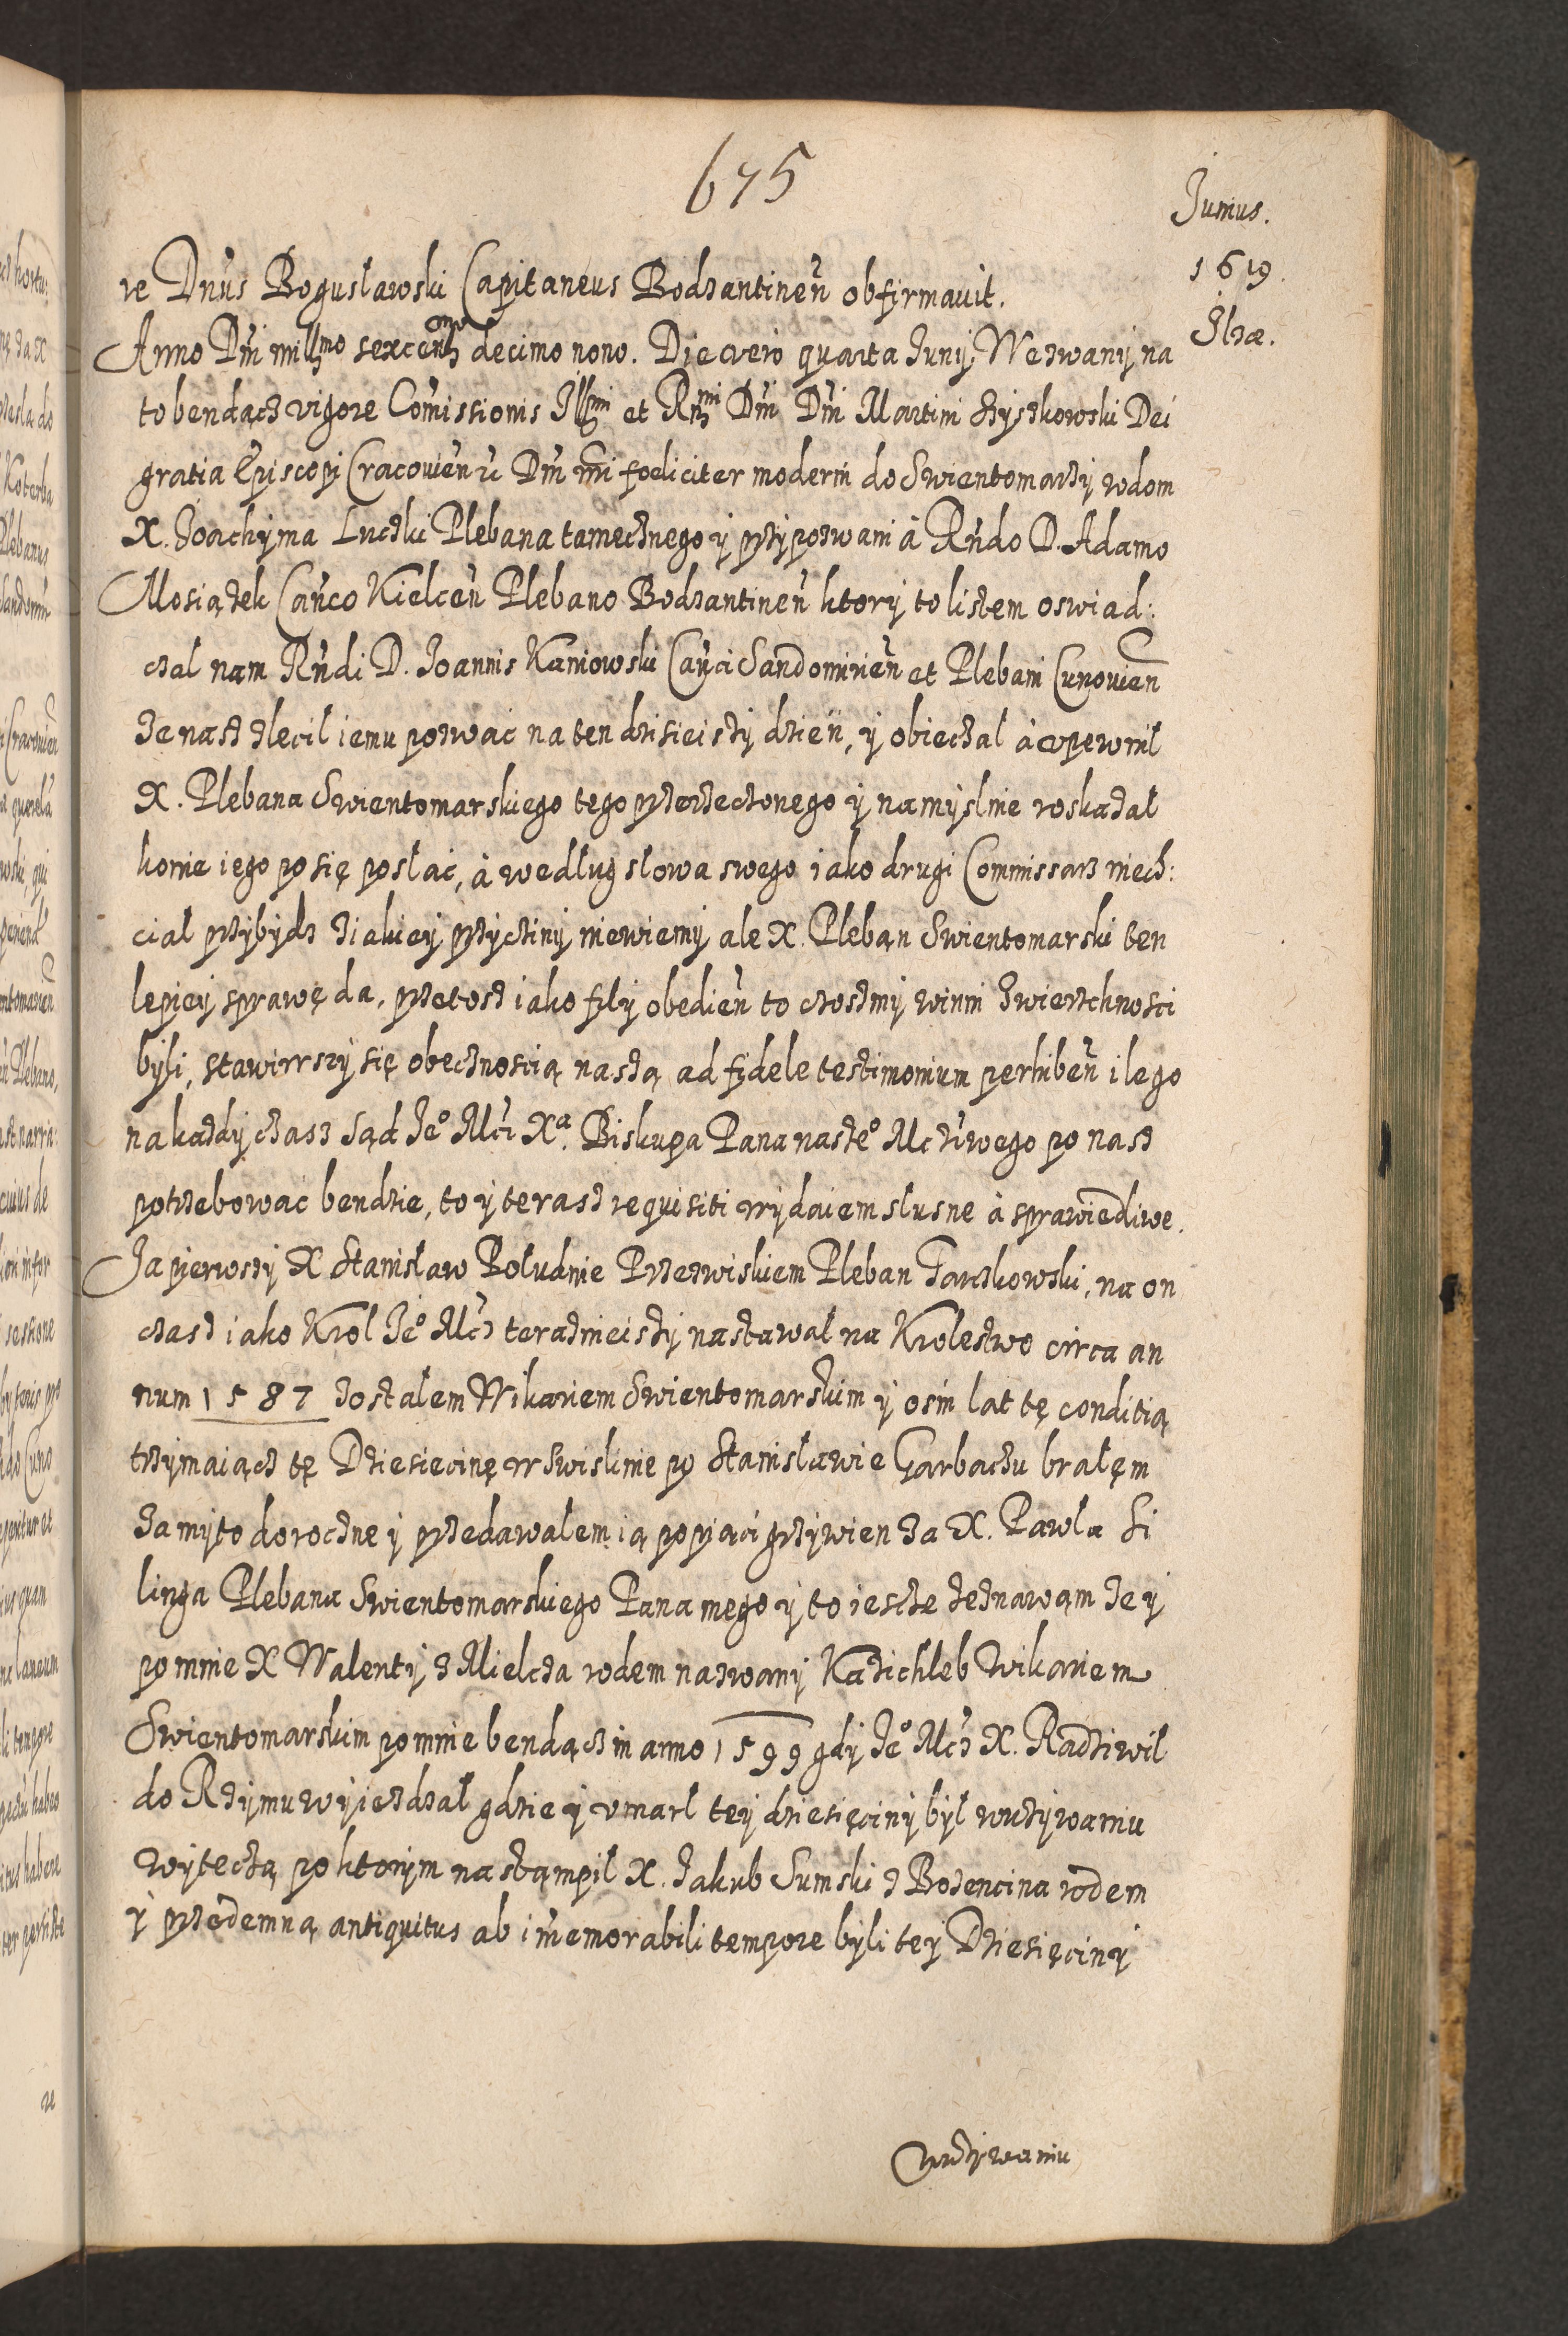 675
Junius.
1619.
Ilzæ.
re Dnus Boguslawski Capitaneus Bodzantinen obfirmauit.
Anno Dni millmo sexcentmo decimo nono. Die vero quarta Juny Wezwany na
to bendącz vigore Comissionis Illmi et Rndmi Dni Dni Martini Szyszkowski Dei
gratia Episcopi Cracouien zc Dni mi foeliciter moderni do Swientomarzy rodom
X. Joachyma Luczki Plebana tamecznego y przypozwani à Rndo D. Adamo
Mosiążek Canco Kielcen Plebano Bodzantinen ktory to listem oswiad:
czal nam Rndi D. Joannis Kaniowski Canci Sandomirien et Plebani Cunouien
że nasz zlecil iemu pozwać na ten dzisieiszy dzień, y obieczal à vpewnil
X. Plebana Swientomarskiego tego przerzeczonego y namyslnie roskazal
konie iego po się poslać, à wedlug slowa swego iako drugi Commissarz niech:
cial przybydz ziakiey przyczyny niewiemy ale X. Pleban Swientomarski ten
lepiey sprawę da, przetosz iako fily obedien to czosmy winni zwierzchnosci
byli, stawirrszy się obecznoscią naszą ad fidele testimonium perhiben ilego
na każdy czasz Sąd Jeo Mći Xa. Biskupa Pana naszeo Mczиwego po nasz
potrzebowac bendzie, to y terasz requisiti rrydaiem slusne à sprawiedliwe.
Ja pierwszy X Stanislaw Poludnie Przezwiskiem Pleban Tarczkowski, na on
czasz iako Krol Jeo Mćz terazneiszy nastawal na Krolestwo circa an
num 1587 zostalem Wikariem Swientomarskim y osm lat tę conditią
trzymaiącz tę Dziesiecinę rr Swislinie po Stanislawie Garbaczu bralęm
za myto doroczne y przedawalem ią po piąci grzywien za X. Pawla Si
linga Plebana Swientomarskiego Pana mego y to iescze zeznawąm że y
po mnie X Walenty z Mielcza rodem nazwany Kazichleb Wikariem
Swientomarskim po mnie bendącz in anno 1599 gdy Jeo Mćz X. Radziwil
do Rzymu wyiezdzal gdzie y vmarl tey dziesięciny byl wużywaniu
Wytecżą po ktorym nastąmpil X. Jakub Sumski z Bozencina rodem
y przedemną antiquitus ab immemorabili tempore byli tey Dziesięciny
wużywaniu